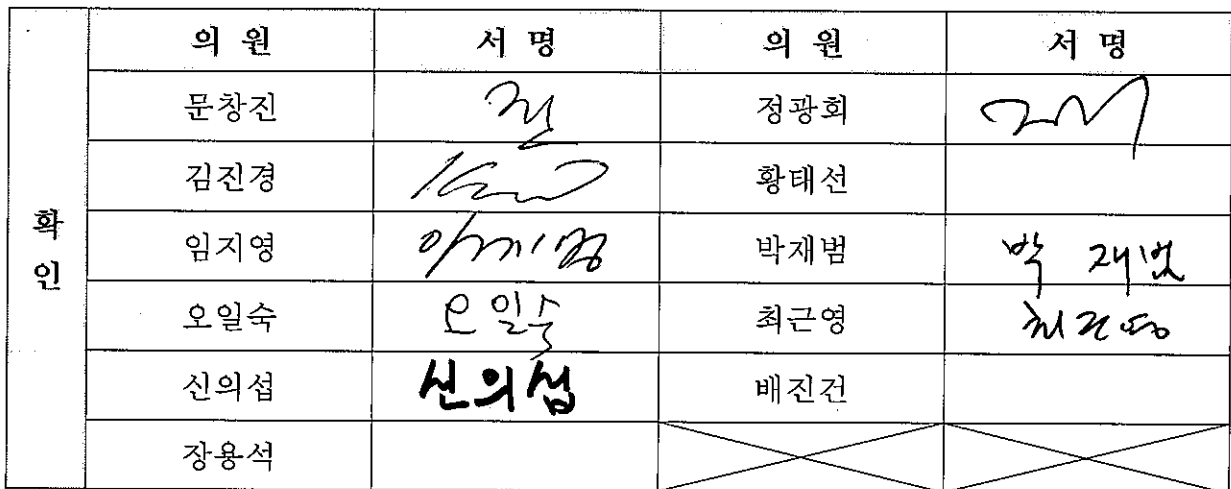 의 원 서 명 의 원 서 명
문창진 정광회
김진경 황태선
확 인
임지영 박재범 박 재범
오일숙 오일숙 최근영 최근영
신의섭 신의섭 배진건
장용석